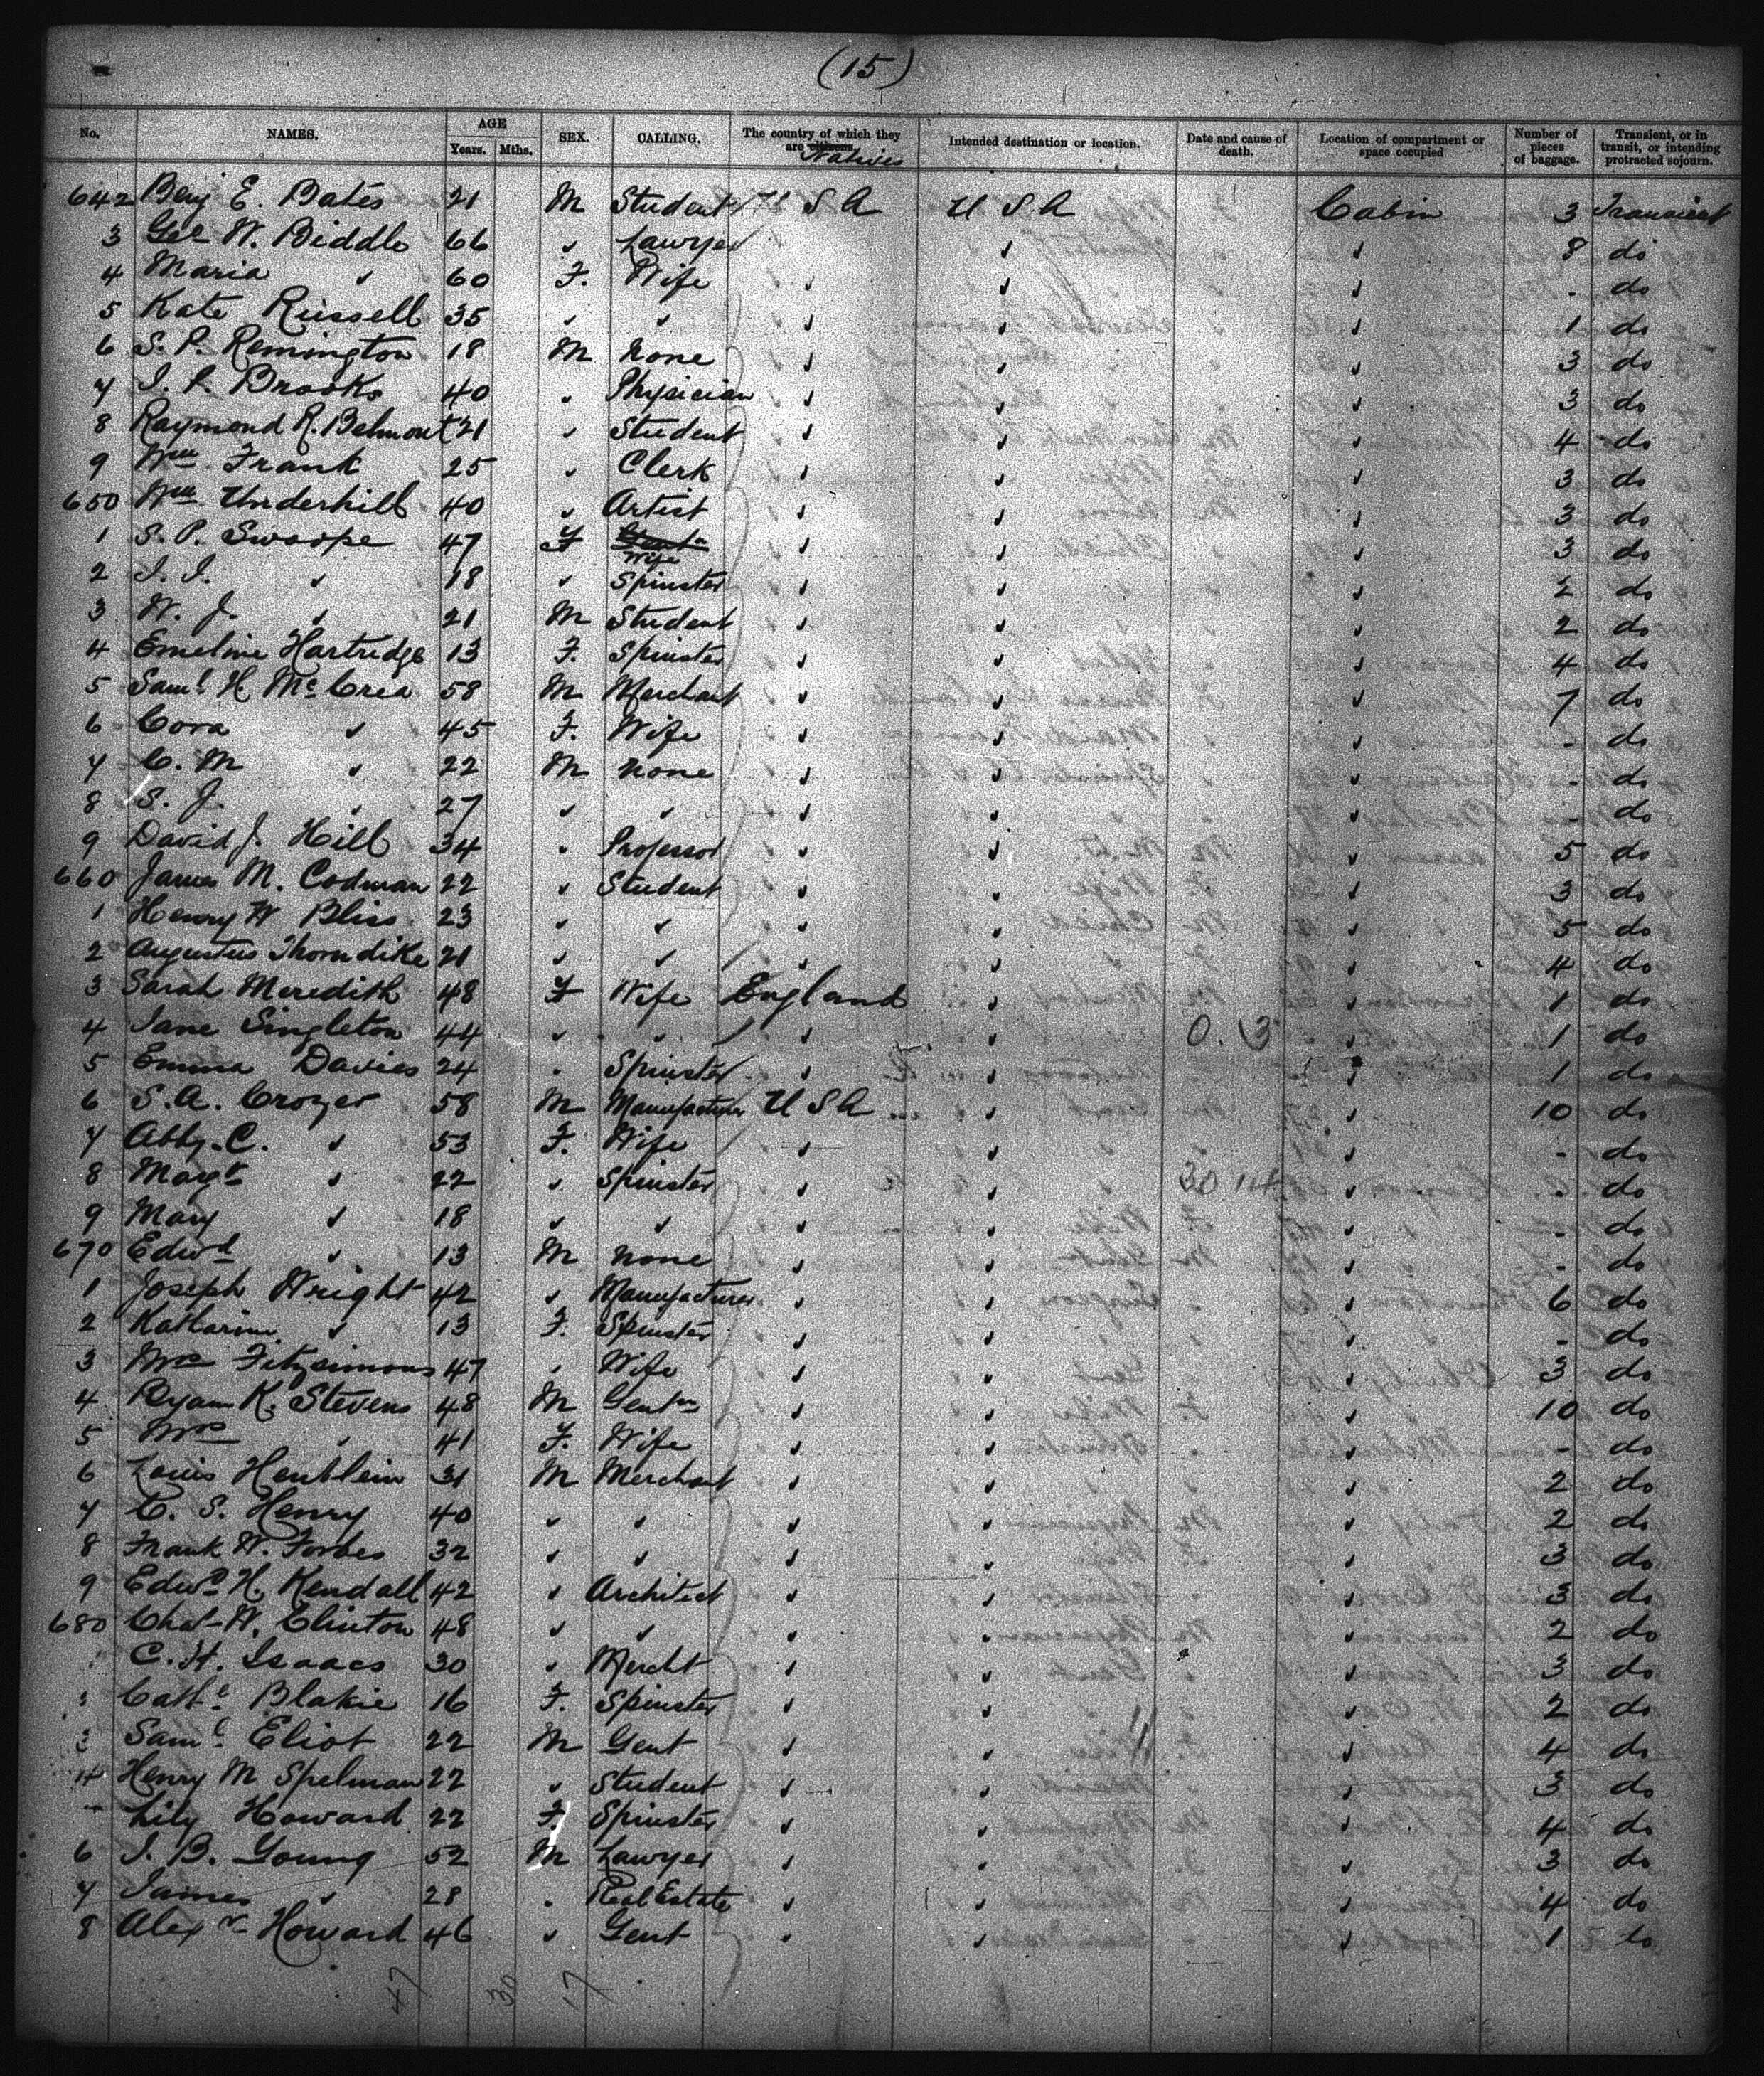 (15)
No. NAMES. AGE Years. Mths. SEX. CALLING. The country of which they are citizens. Natives Intended destination or location. Date and cause of death. Location of compartment or space occupied Number of pieces of baggage. Transient, or in transit, or intending protracted sojourn.
642 Benj E. Bates 21 M Student U S A U S A Cabin 3 Transient
3 Geo W. Biddle 66 " Lawyer " " " 8 do
4 Maria " 60 F. Wife " " " - do
5 Kate Russell 35 " " " " " 1 do
6 S. P. Remington 18 M None " " " 3 do
7 I. P. Brooks 40 " Physician " " " 3 do
8 Raymond R. Belmont 21 " Student " " " 4 do
9 Wm Frank 25 " Clerk " " " 3 do
650 Wm Underhill 40 " Artist " " " 3 do
1 S. P. Swoope 47 F Gentn Wife " " " 3 do
2 I. I. " 18 " Spinster " " " 2 do
3 W. J. " 21 M Student " " " 2 do
4 Emeline Hartridge 13 F. Spinster " " " 4 do
5 Saml H. McCrea 58 M Merchant " " " 7 do
6 Cora " 45 F. Wife " " " - do
7 C. M " 22 M None " " " - do
8 S. J. " 27 " " " " " - do
9 David J. Hill 34 " Professor " " " 5 do
660 James M. Codman 22 " Student " " " 3 do
1 Henry W Bliss 23 " " " " " 5 do
2 Augustus Thorndike 21 " " " " " 4 do
3 Sarah Meredith 48 F Wife England " " 1 do
4 Jane Singleton 44 " " " " " 1 do
5 Emma Davies 24 " Spinster " " " 1 do
6 S. A. Crozer 58 M Manufacturer U S A " " 10 do
7 Abby. C. " 53 F. Wife " " " - do
8 Margt " 22 " Spinster " " " - do
9 Mary " 18 " " " " " - do
670 Edwd " 13 M None " " " - do
1 Joseph Wright 42 " Manufacturer " " " 6 do
2 Katharine " 13 F. Spinster " " " - do
3 Mrs Fitzsimons 47 " Wife " " " 3 do
4 Byam K. Stevens 48 M Gentn " " " 10 do
5 Mrs " 41 F. Wife " " " - do
6 Louis Heublein 31 M Merchant " " " 2 do
7 C. S. Henry 40 " " " " " 2 do
8 Frank W. Forbes 32 " " " " " 3 do
9 Edwd H. Kendall 42 " Architect " " " 3 do
680 Chas W. Clinton 48 " " " " " 2 do
C. H. Isaacs 30 " Mercht " " " 3 do
Cathe Blakie 16 F. Spinster " " " 2 do
3 Saml Eliot 22 M Gent " " " 4 do
4 Henry M Spelman 22 " Student " " " 3 do
Lily Howard 22 F. Spinster " " " 4 do
6 I. B. Young 52 M Lawyer " " " 3 do
7 James " 28 " Real Estate " " " 4 do
8 Alexr Howard 46 " Gent " " " 1 do
47 30 17